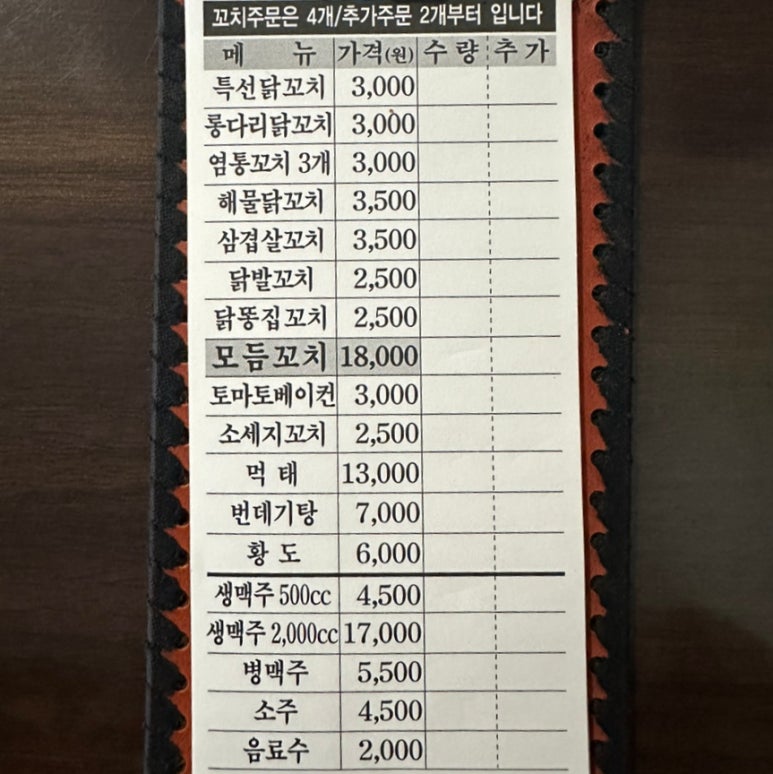 꼬치주문은 4개/추가주문 2개부터 입니다
메 뉴 가격(원) 수 량 추 가
특선닭꼬치 3,000
롱다리닭꼬치 3,000
염통꼬치 3개 3,000
해물닭꼬치 3,500
삼겹살꼬치 3,500
닭발꼬치 2,500
닭똥집꼬치 2,500
모듬꼬치 18,000
토마토베이컨 3,000
소세지꼬치 2,500
먹 태 13,000
번데기탕 7,000
황 도 6,000
생맥주 500cc 4,500
생맥주 2,000cc 17,000
병맥주 5,500
소주 4,500
음료수 2,000